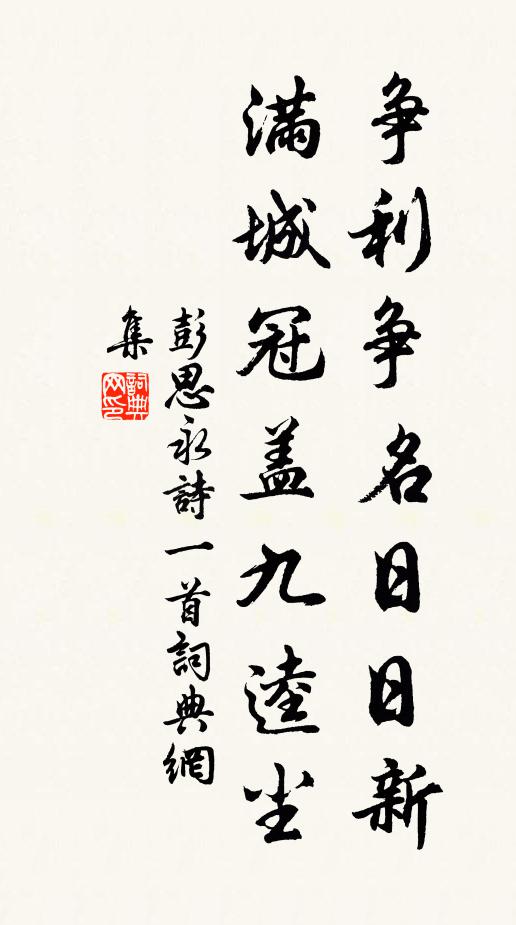 争利争名日日新
满城冠盖九逵尘
彭思永詩一首詞典網
集
詞典
网印